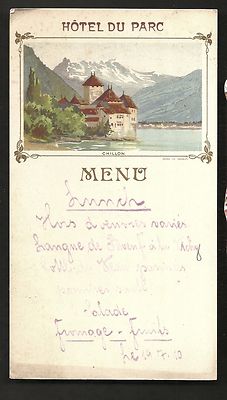 HÔTEL DU PARC
CHILLON
MENU
Lunch
Hors d'œuvres variés
Langue de Bœuf à la
de Veau
Salade
Fromage - Fruits
Le 19.7.10